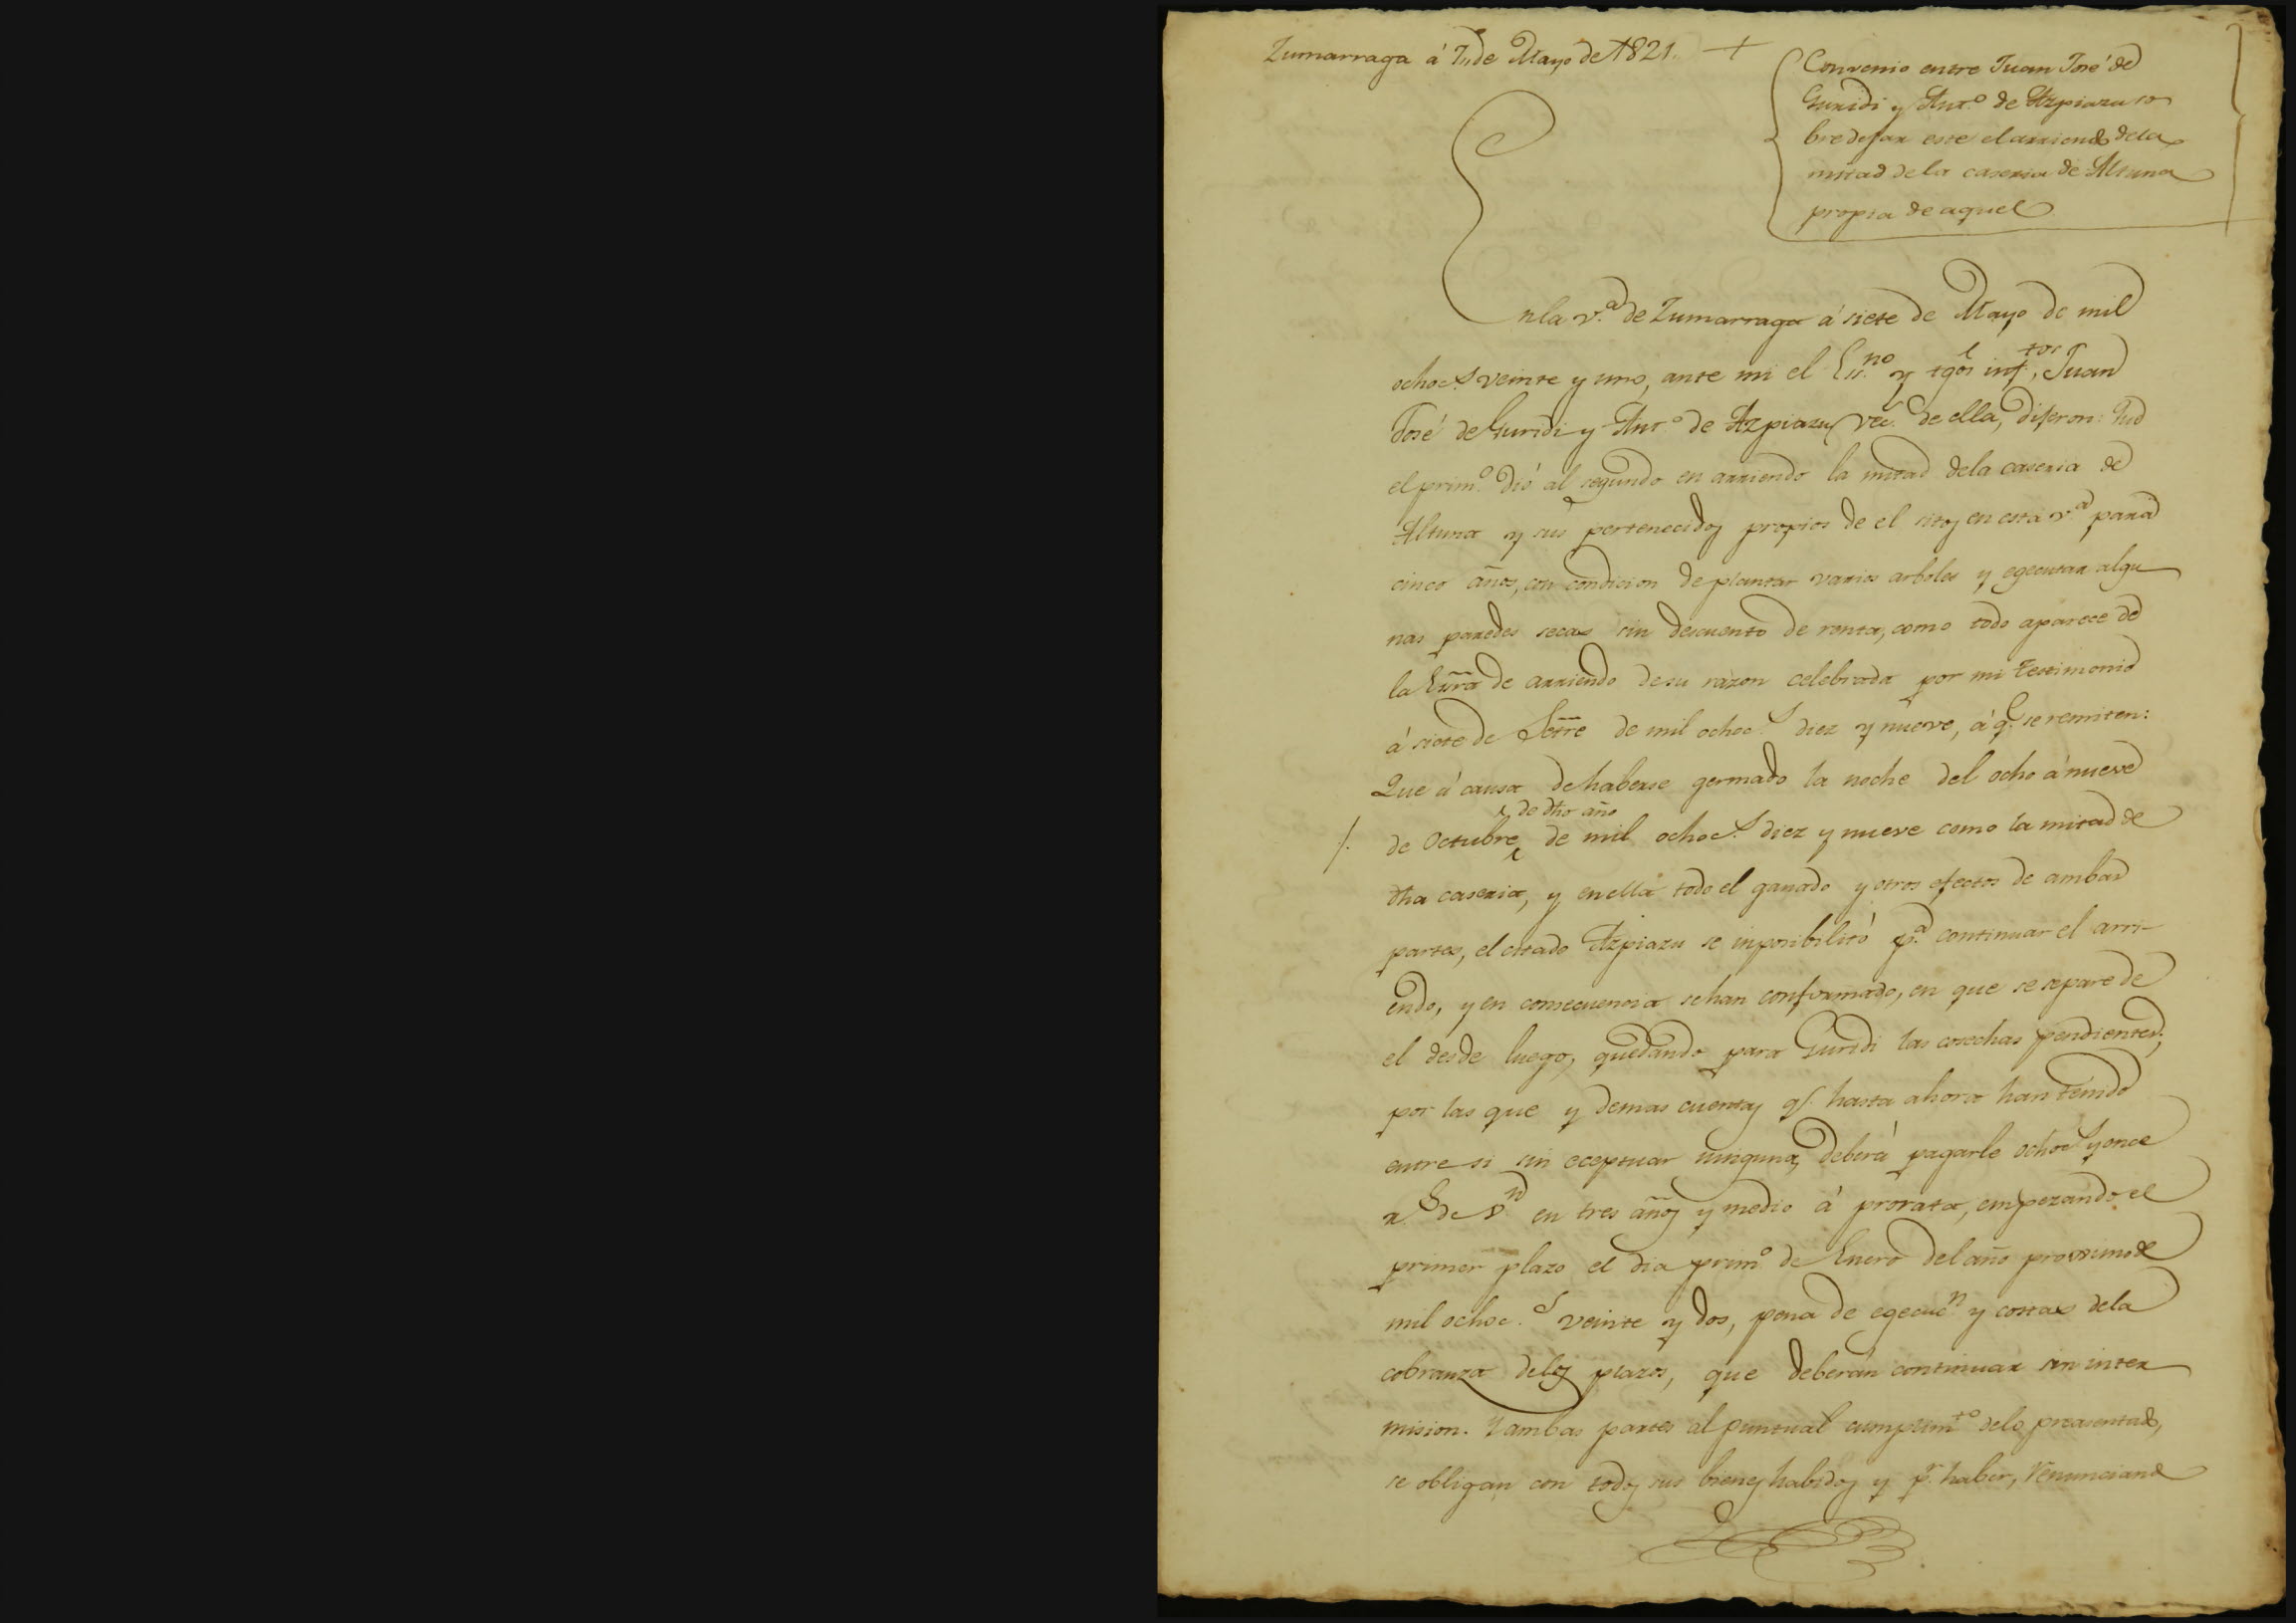 Zumarraga á 7,, de Mayo de 1821. +
Convenio entre Juan José de
Guridi y Ant.º de Azpiazu so
bre dejar este el arriendo dela
mitad de la caseria de Altuna
propia de aquel
Enla v.ª de Zumarraga á siete de Mayo de mil
ochoc.s veinte y uno, ante mi el Es.no y tgos inf.tos, Juan
José de Guridi y Ant.º de Azpiazu vec.s de ella, dijeron: Que
el prim.º dió al segundo en arriendo la mitad dela caseria de
Altuna y sus pertenecidos propios de el sitos en esta v.ª para
cinco años, con condicion de plantar varios arboles y egecutar algu
nas paredes secas sin descuento de renta, como todo aparece de
la Esrra de arriendo desu razon celebrada por mi testimonio
á siete de Setre de mil ochoc.s diez y nueve, á q.e se remiten:
Que á causa de haberse germado la noche del ocho á nueve
de dho año
/. de Octubre de mil ochoc.s diez y nueve como la mitad de
dha caseria, y enella todo el ganado y otros efectos de ambas
partes, el citado Azpiazu se inposibilitó p.ª continuar el arri-
endo, y en consecuencia sehan conformado, en que se separe de
el desde luego, quedando para Guridi las cosechas pendientes;
por las que y demas cuentas q.e hasta ahora han tenido
entre si sin eceptuar ninguna, deberá pagarle ochoc.s y once
r.s de v.n en tres años y medio á prorata, empezando el
primer plazo el dia prim.º de Enero del año proximo de
mil ochoc.s veinte y dos, pena de egecuc.n y costas dela
cobranza delos plazos, que deberán continuar sin inter
mision. Y ambas partes al puntual cumplim.to delo presentado,
se obligan con todos sus bienes habidos y p.r haber, renunciando